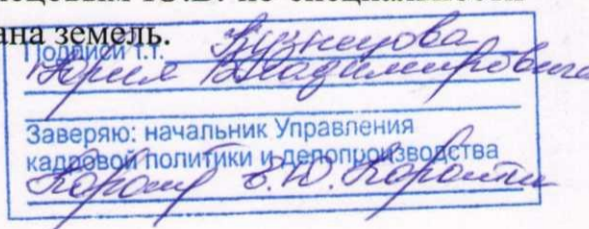 ана земель.
Подписи т.т. Кузнецова
Юрия Владимировича
Заверяю: начальник Управления
кадровой политики и делопроизводства